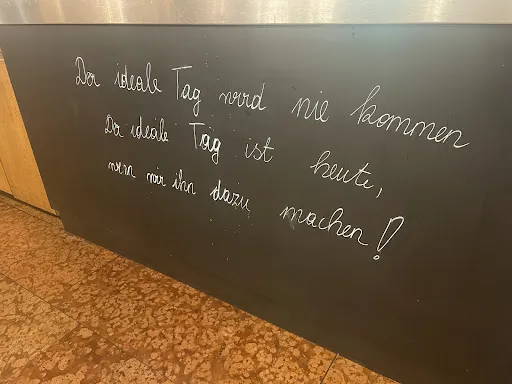 Der ideale Tag wird nie kommen
Der ideale Tag ist heute,
wenn wir ihn dazu machen!